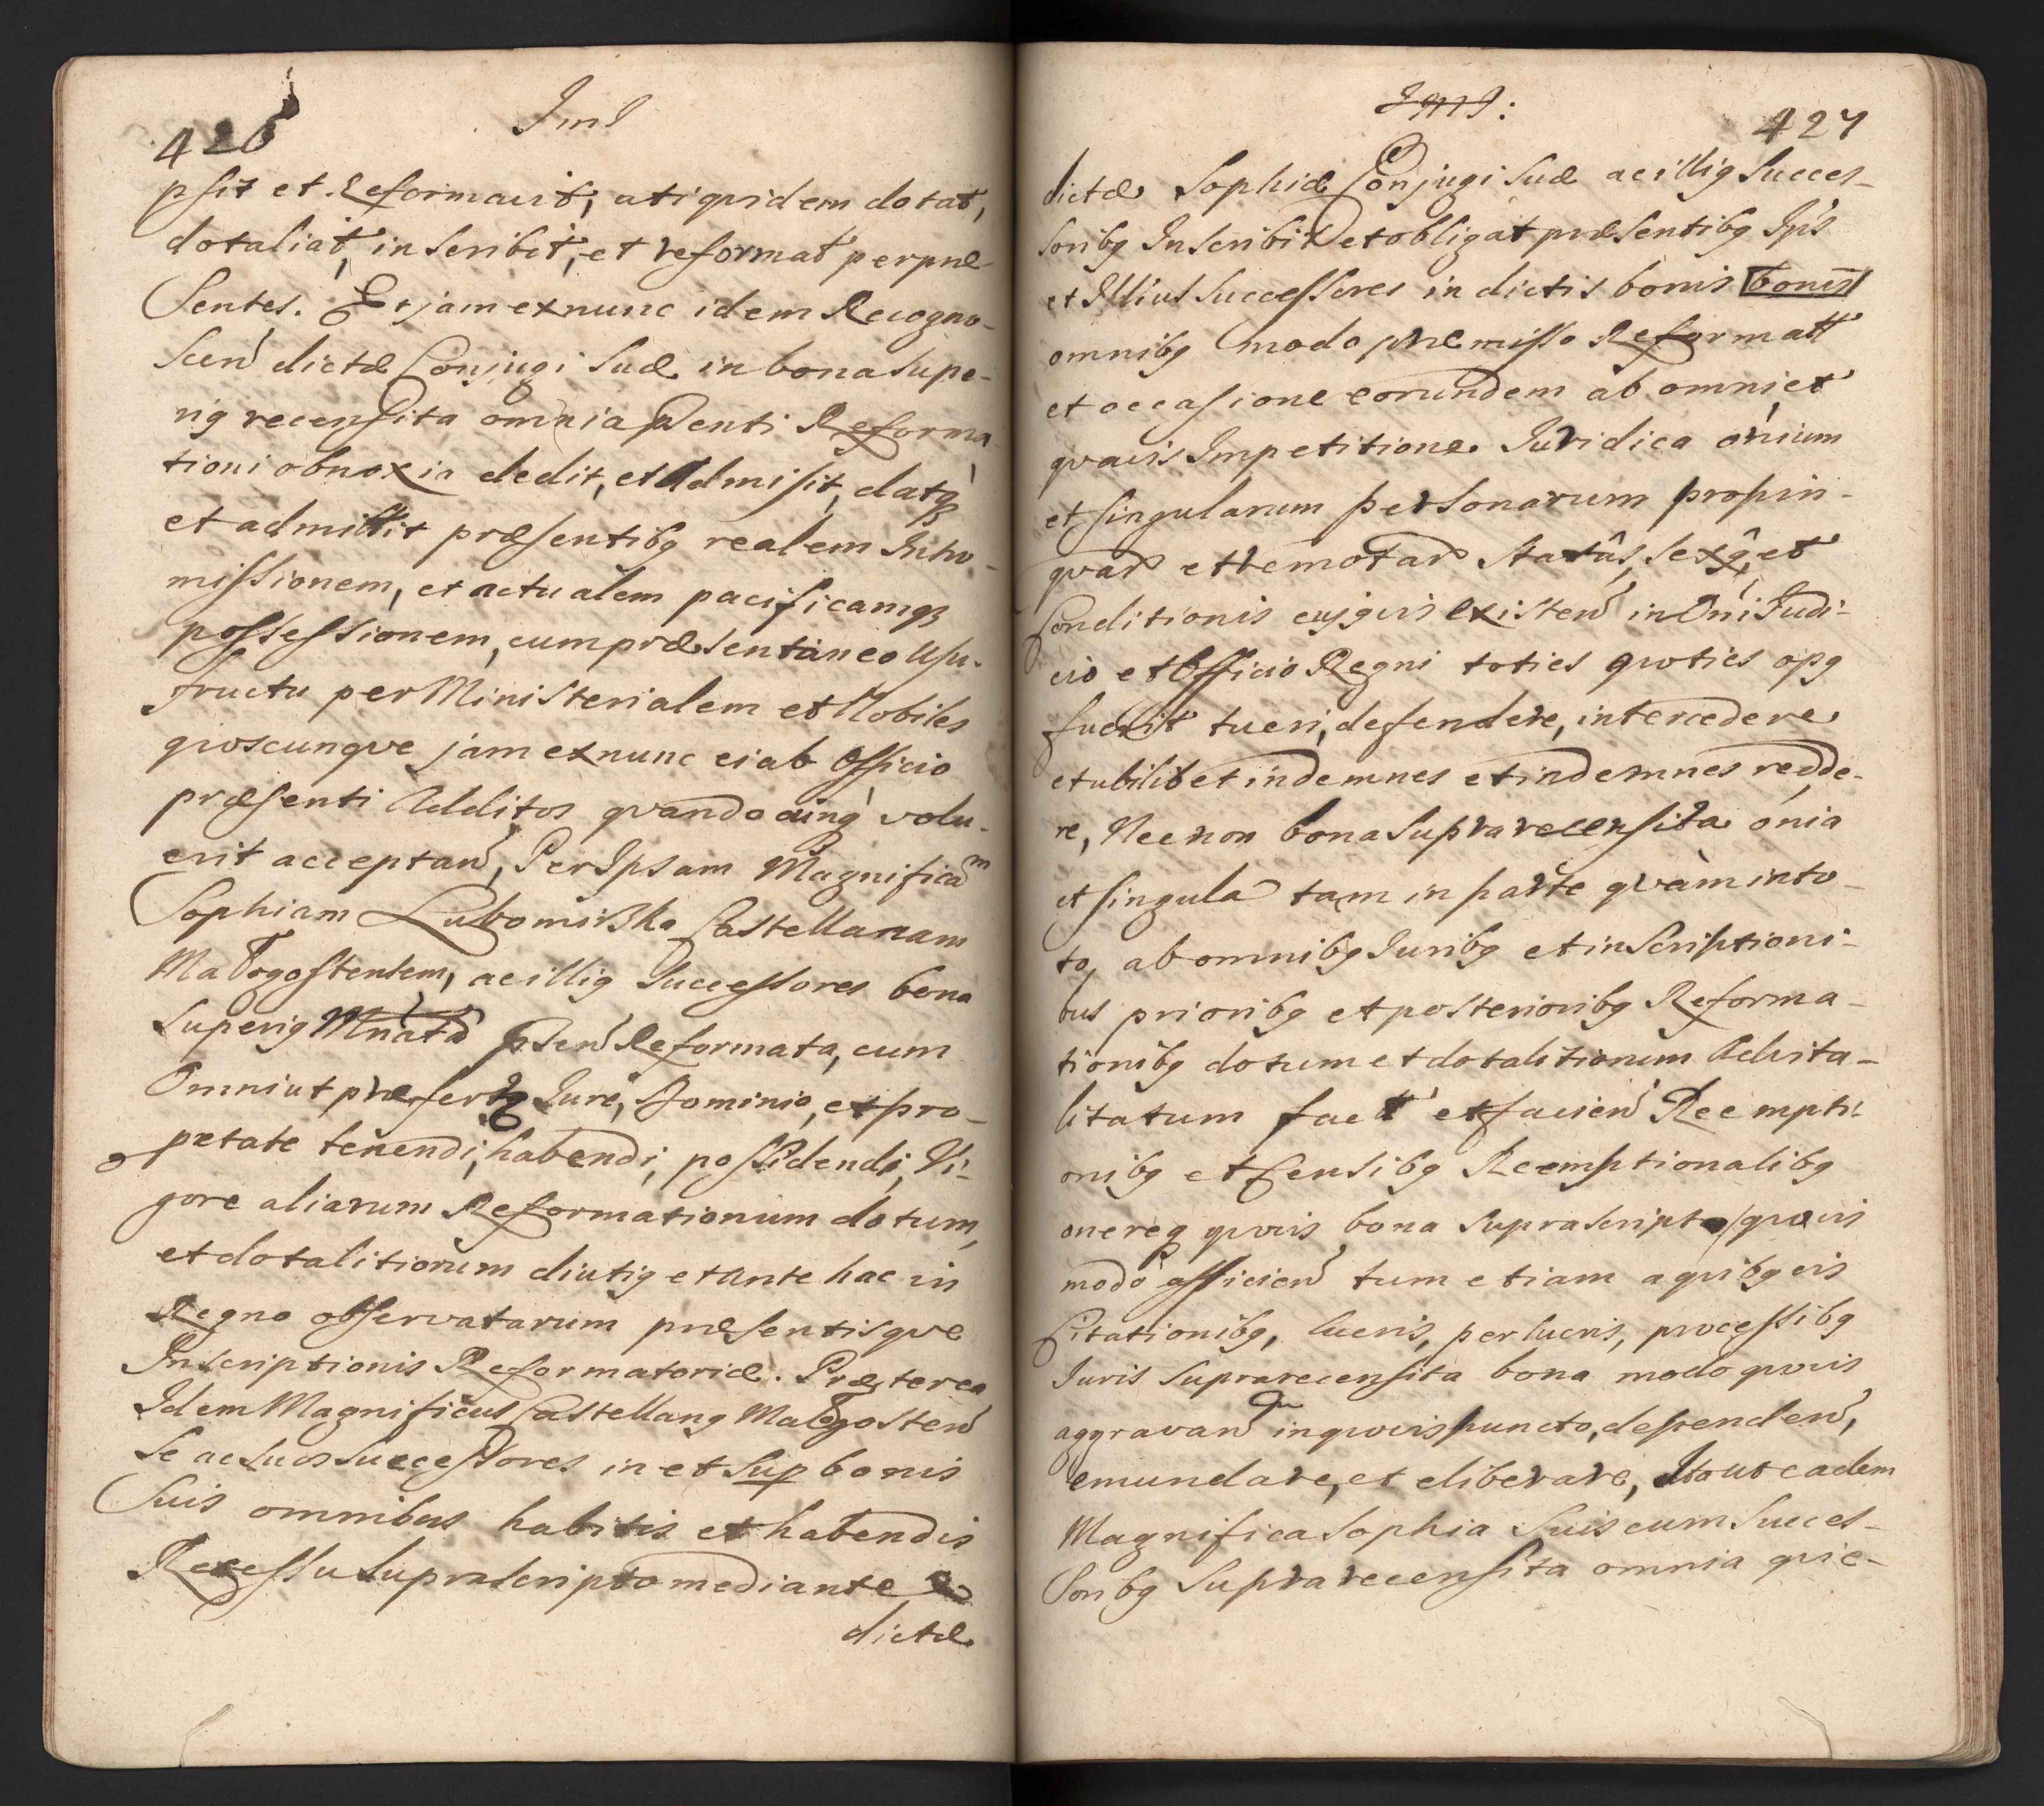 426
Jml
psit et Reformavit, uti quidem dotat,
dotaliat, inscribit, et reformat per præ-
Sentes. Et jam ex nunc idem Recogno-
Scen dictæ Conjugi Suæ in bona Supe-
rig recensita omnia pñenti Reforma-
tioni obnoxia dedit, et Admisit, datq,
et admittit præsentibg realem Intro-
missionem, et actualem pacificamq
possessionem, cum præsentaneo Usu-
fructu per Ministerialem et Nobiles
qvoscunqve jam ex nunc ei ab Officio
præsenti Additos qvandocunq volu-
erit acceptan, Per Ipsam Magnificam
Sophiam Lubomirska Castellanam
Małogostensem, ac illig Successores bona
Superig Mnata psen Reformata, cum
Omni ut præfertg Jure, Dominio, et pro-
petate tenendi, habendi, possidendi, Vi-
gore aliarum Reformationum dotum,
et dotalitiorum diutig et ante hac in
Regno observatarum præsentisqve
Inscriptionis Reformatoriæ. Præterea
Idem Magnificus Castellang Małogosten
Se ac Suos Successores in et Sup bonis
Suis omnibus habitis et habendis
Recessu Suprascripto mediante
dictæ
Jml:
427
dictæ Sophiæ Conjugi Suæ ac illig Succes-
soribg Inscribit et obligat præsentibg Ips
et Illius Successores in dictis bonis bonis
omnibg modo præmisso Reformatt
et occasione eorundem ab omni et
qvavis Impetitione Juridica oñium
et singularum personarum propin-
qvar et remotar Statûs, Sexg, et
Conditionis cujqvis existen in Oñi Judi-
cio et Officio Regni toties qvoties opg
fuerit tueri, defendere, intercedere
et ubilibet indemnes et indemnes redde-
re, Necnon bona Supra recensita oñia
et singula tam in parte qvàm in to-
to, ab omnibg Juribg et inscriptioni-
bus prioribg et posterioribg Reforma-
tionibg dotum et dotalitiorum Advita-
litatum fact et facien Reempti-
onibg et Censibg Reemptionalibg
onereq qvovis bona Suprascripta qvovis
modo afficien tum etiam a qvibgvis
Citationibg, lucris, perlucris, processibg
Juris Suprarecensita bona modo qvovis
aggravan in qvovis puncto, dependen,
emundare, et eliberare, Ita ut eadem
Magnifica Sophia Suis cum Succes-
soribg Supra recensita omnia qvie-